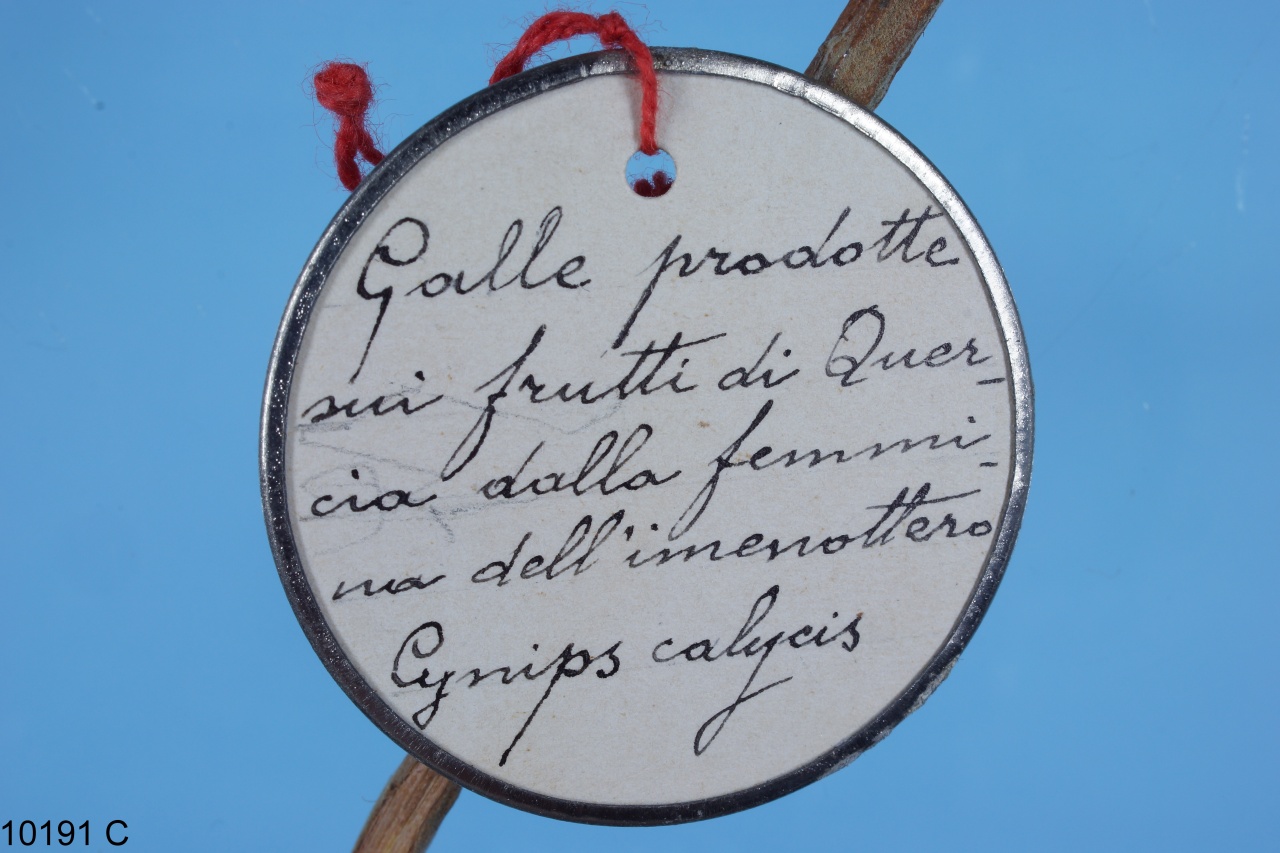 Galle prodotte
sui frutti di Quer-
cia dalla femmi-
na dell'imenottero
Cynips calycis
10191 C